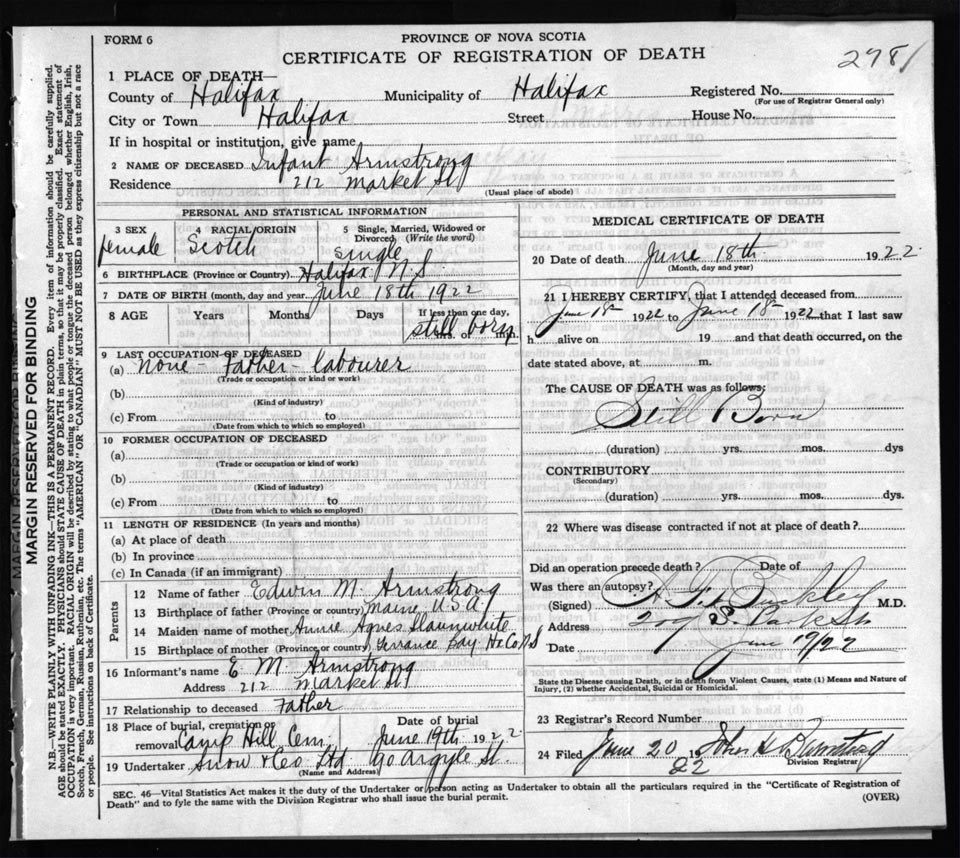 FORM 6
PROVINCE OF NOVA SCOTIA
CERTIFICATE OF REGISTRATION OF DEATH
2781
1 PLACE OF DEATH—
County of Halifax Municipality of Halifax Registered No.
(For use of Registrar General only)
City or Town Halifax Street House No.
If in hospital or institution, give name
2 NAME OF DECEASED Infant Armstrong
Residence 212 Market St
(Usual place of abode)
PERSONAL AND STATISTICAL INFORMATION
3 SEX 4 RACIAL ORIGIN 5 Single, Married, Widowed or Divorced (Write the word)
female Scotch Single
6 BIRTHPLACE (Province or Country) Halifax N.S.
7 DATE OF BIRTH (month, day and year) June 18th 1922
8 AGE Years Months Days If less than one day,
still born
hrs. or
9 LAST OCCUPATION OF DECEASED
(a) none - Father - labourer
(Trade or occupation or kind of work)
(b)
(Kind of industry)
(c) From to
(Date from which to which so employed)
10 FORMER OCCUPATION OF DECEASED
(a)
(Trade or occupation or kind of work)
(b)
(Kind of industry)
(c) From to
(Date from which to which so employed)
11 LENGTH OF RESIDENCE (In years and months)
(a) At place of death
(b) In province
(c) In Canada (if an immigrant)
Parents
12 Name of father Edwin M. Armstrong
13 Birthplace of father (Province or country) Maine, U.S.A.
14 Maiden name of mother Annie Agnes Slaunwhite
15 Birthplace of mother (Province or country) Terrance Bay Hx Co N S
16 Informant's name E. M. Armstrong
Address 212 Market St
17 Relationship to deceased Father
18 Place of burial, cremation or removal Camp Hill Cem Date of burial June 19th 1922
19 Undertaker Snow & Co Ltd 90 Argyle St.
(Name and Address)
MEDICAL CERTIFICATE OF DEATH
20 Date of death June 18th 1922
(Month, day and year)
21 I HEREBY CERTIFY, that I attended deceased from
June 18th 1922 to June 18 1922 that I last saw
h alive on 19 and that death occurred, on the
date stated above, at m.
The CAUSE OF DEATH was as follows:
Still Born
(duration) yrs. mos. dys
CONTRIBUTORY
(Secondary)
(duration) yrs. mos. dys.
22 Where was disease contracted if not at place of death?
Did an operation precede death? Date of
Was there an autopsy?
(Signed) M.D.
Address Park St
Date June 1922
State the Disease causing Death, or in death from Violent Causes, state (1) Means and Nature of Injury, (2) whether Accidental, Suicidal or Homicidal.
23 Registrar's Record Number
24 Filed June 20 19 22
Division Registrar
SEC. 46—Vital Statistics Act makes it the duty of the Undertaker or person acting as Undertaker to obtain all the particulars required in the "Certificate of Registration of
Death" and to fyle the same with the Division Registrar who shall issue the burial permit.
(OVER)
MARGIN RESERVED FOR BINDING
N.B.—WRITE PLAINLY WITH UNFADING INK—THIS IS A PERMANENT RECORD. Every item of information should be carefully supplied.
AGE should be stated EXACTLY. PHYSICIANS should STATE CAUSE OF DEATH in plain terms, so that it may be properly classified. Exact statement of
OCCUPATION is very important. RACIAL ORIGIN will be described by stating to what people or tongue the deceased person belonged whether English, Irish,
Scotch, French, German, Russian, Ruthenian, etc. The terms "AMERICAN" OR "CANADIAN" MUST NOT BE USED as they express citizenship but not a race
or people. See instructions on back of Certificate.